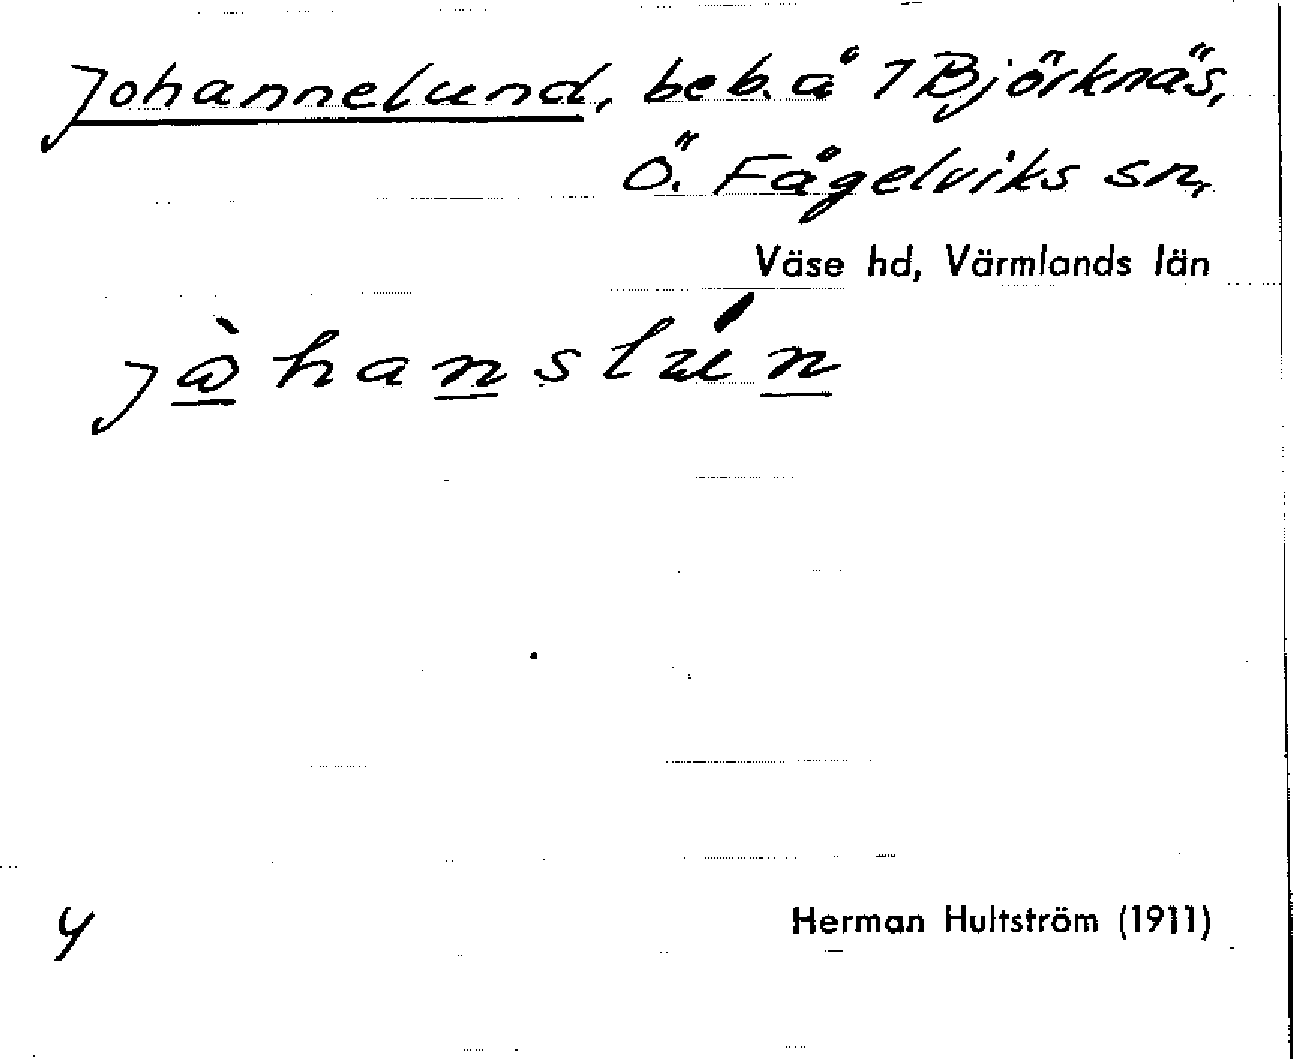 Johannelund, beb. å 7 Björknäs,
Ö. Fågelviks sn,
Väse hd, Värmlands län
jàhanslún
y
Herman Hultström (1911)